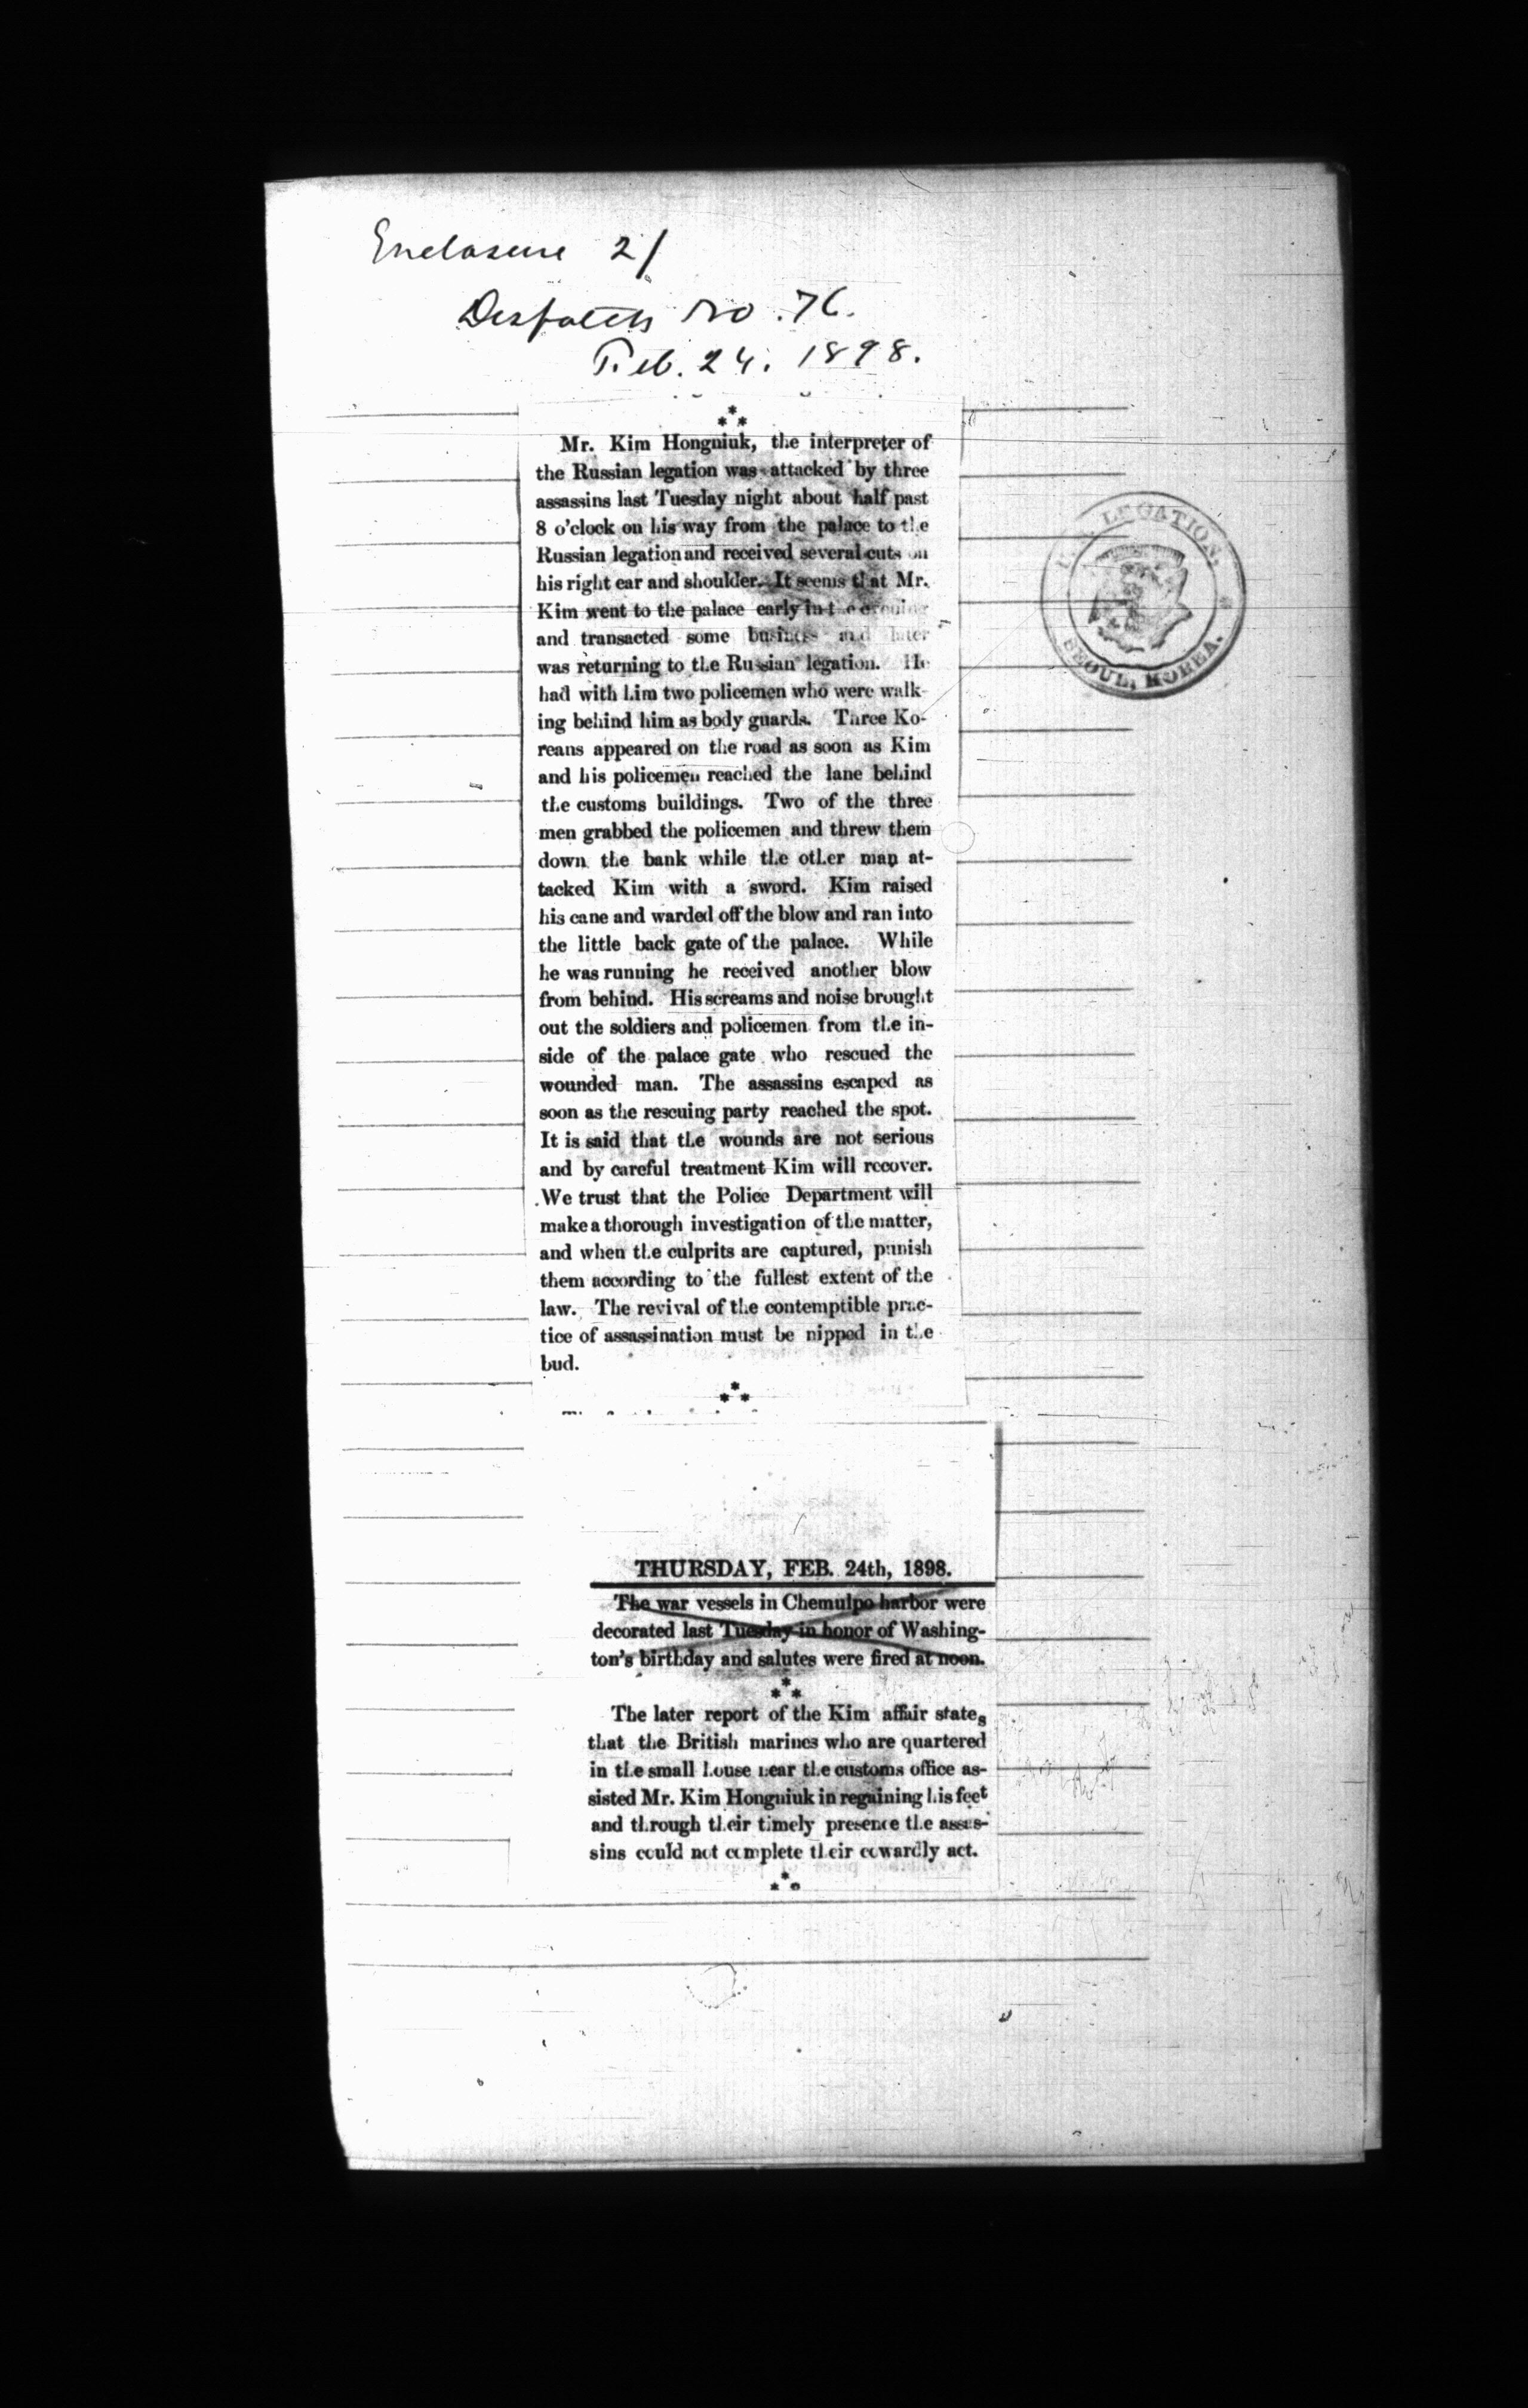 Enclosure 2/
Despatch No. 76.
Feb. 24. 1898.
Mr. Kim Hongniuk, the interpreter of
the Russian legation was attacked by three
assassins last Tuesday night about half past
8 o'clock on his way from the palace to the
Russian legation and received several cuts on
his right ear and shoulder. It seems that Mr.
Kim went to the palace early in the evening
and transacted some business and later
was returning to the Russian legation. He
had with him two policemen who were walk-
ing behind him as body guards. Three Ko-
reans appeared on the road as soon as Kim
and his policemen reached the lane behind
the customs buildings. Two of the three
men grabbed the policemen and threw them
down the bank while the other man at-
tacked Kim with a sword. Kim raised
his cane and warded off the blow and ran into
the little back gate of the palace. While
he was running he received another blow
from behind. His screams and noise brought
out the soldiers and policemen from the in-
side of the palace gate who rescued the
wounded man. The assassins escaped as
soon as the rescuing party reached the spot.
It is said that the wounds are not serious
and by careful treatment Kim will recover.
We trust that the Police Department will
make a thorough investigation of the matter,
and when the culprits are captured, punish
them according to the fullest extent of the
law. The revival of the contemptible prac-
tice of assassination must be nipped in the
bud.
LEGATION,
SEOUL, KOREA.
THURSDAY, FEB. 24th, 1898.
The war vessels in Chemulpo harbor were
decorated last Tuesday in honor of Washing-
ton's birthday and salutes were fired at noon.
The later report of the Kim affair states
that the British marines who are quartered
in the small house near the customs office as-
sisted Mr. Kim Hongniuk in regaining his feet
and through their timely presence the assas-
sins could not complete their cowardly act.